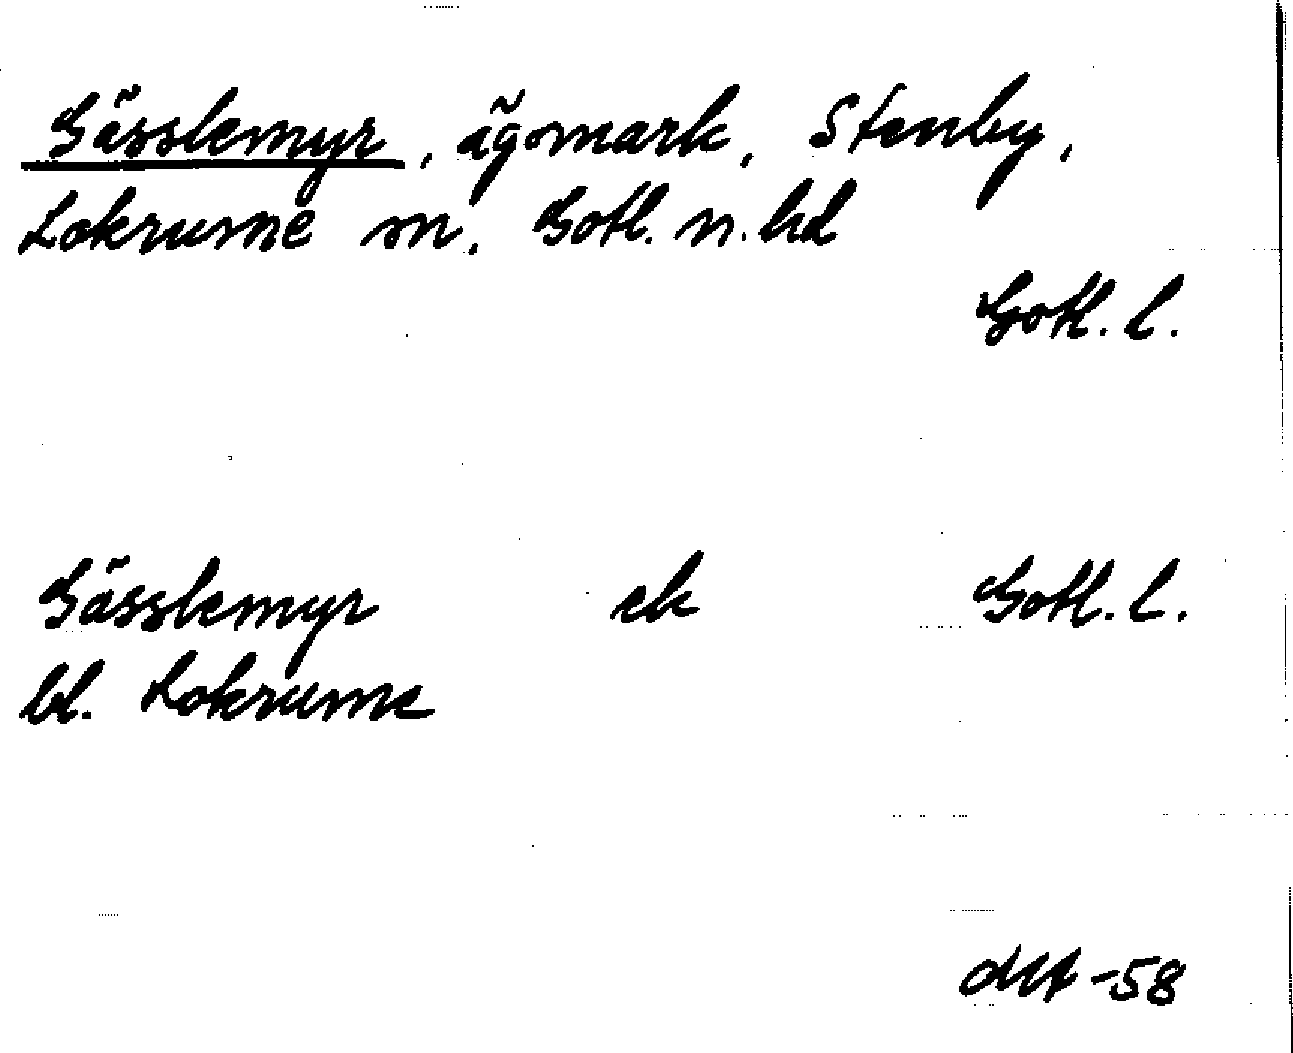 Gässlemyr, ägomark, Stenby,
Lokrume sn. Gotl. n. hd
Gotl. l.
Gässlemyr ek Gotl. l.
bl. Lokrume
-58